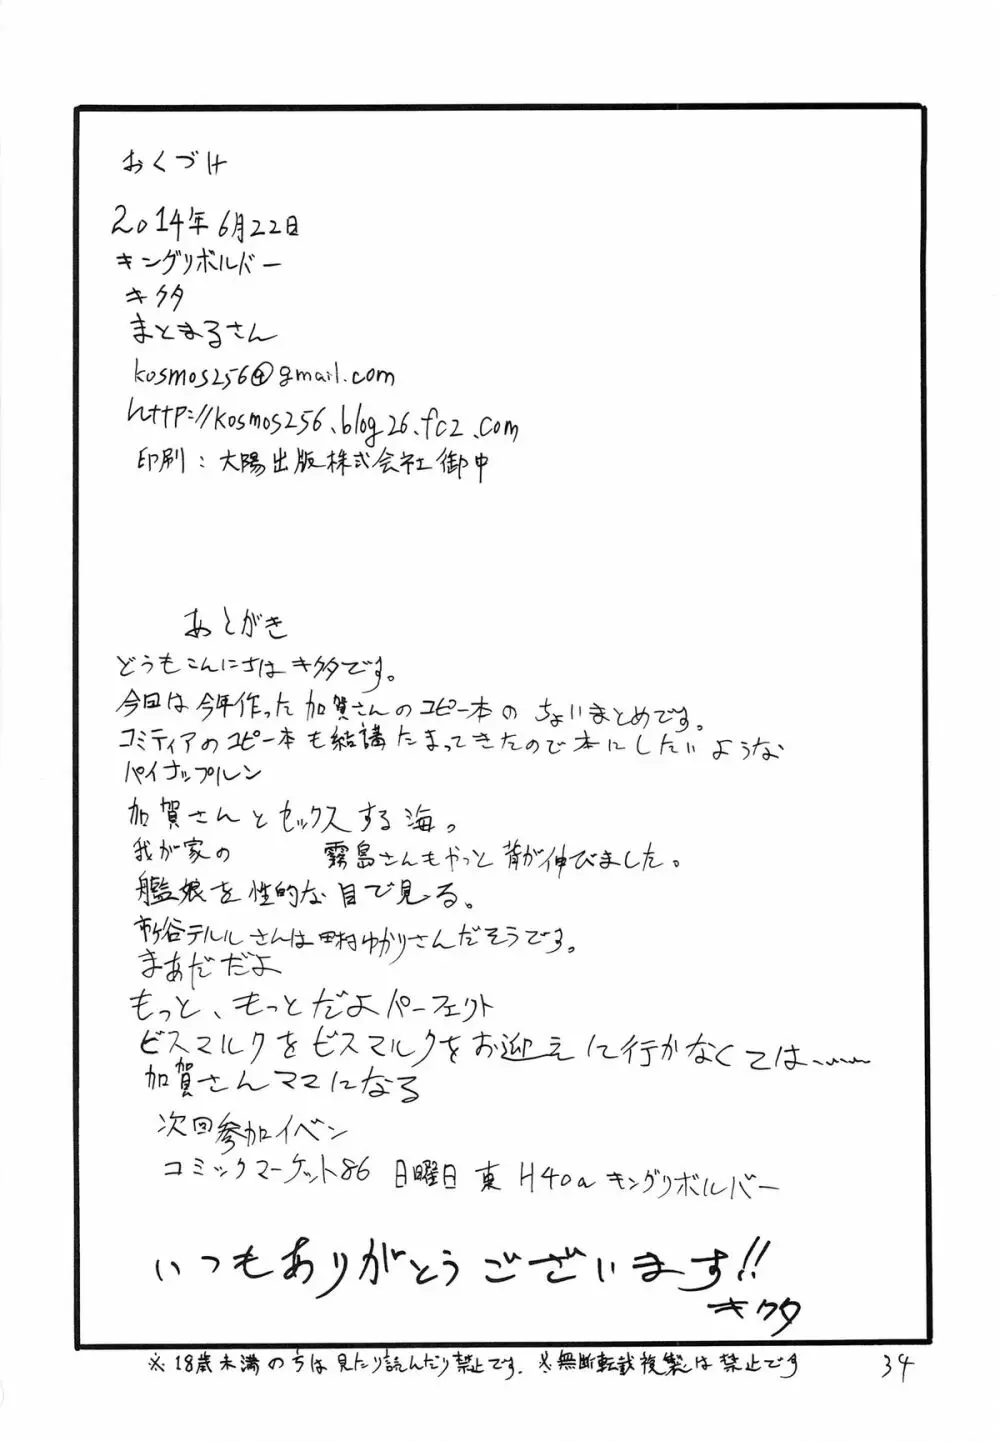 おくづけ
2014年6月22日
キングリボルバー
キクタ
まとまるさん
kosmos256@gmail.com
http://kosmos256.blog26.fc2.com
印刷：大陽出版株式会社御中
あとがき
どうもこんにちは キクタです。
今回は今年作った加賀さんのコピー本の ちょいまとめです。
コミティアのコピー本も結構たまってきたので本にしたいような
パイナップルン
加賀さんとセックスする海。
我が家の 霧島さんもやっと背が伸びました。
艦娘を性的な目で見る。
市ヶ谷テルルさんは田村ゆかりさんだそうです。
まあだだよ
もっと、もっとだよパーフェクト
ビスマルクをビスマルクをお迎えに行かなくては……
加賀さんママになる
次回参加イベン
コミックマーケット86 日曜日 東 H40a キングリボルバー
いつもありがとうございます!!
キクタ
※18歳未満の方は見たり読んだり禁止です. ※無断転載複製は禁止です
34